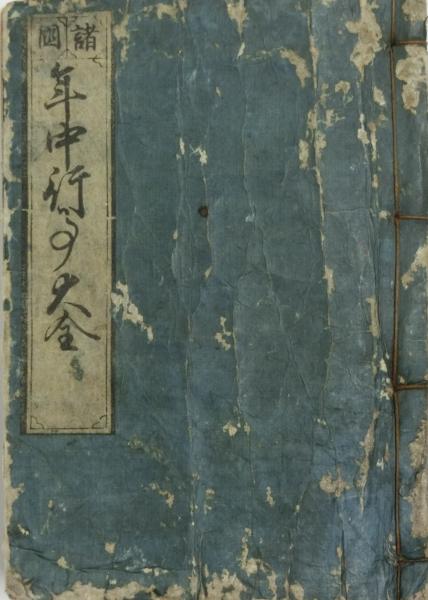 諸國
年中行事大全